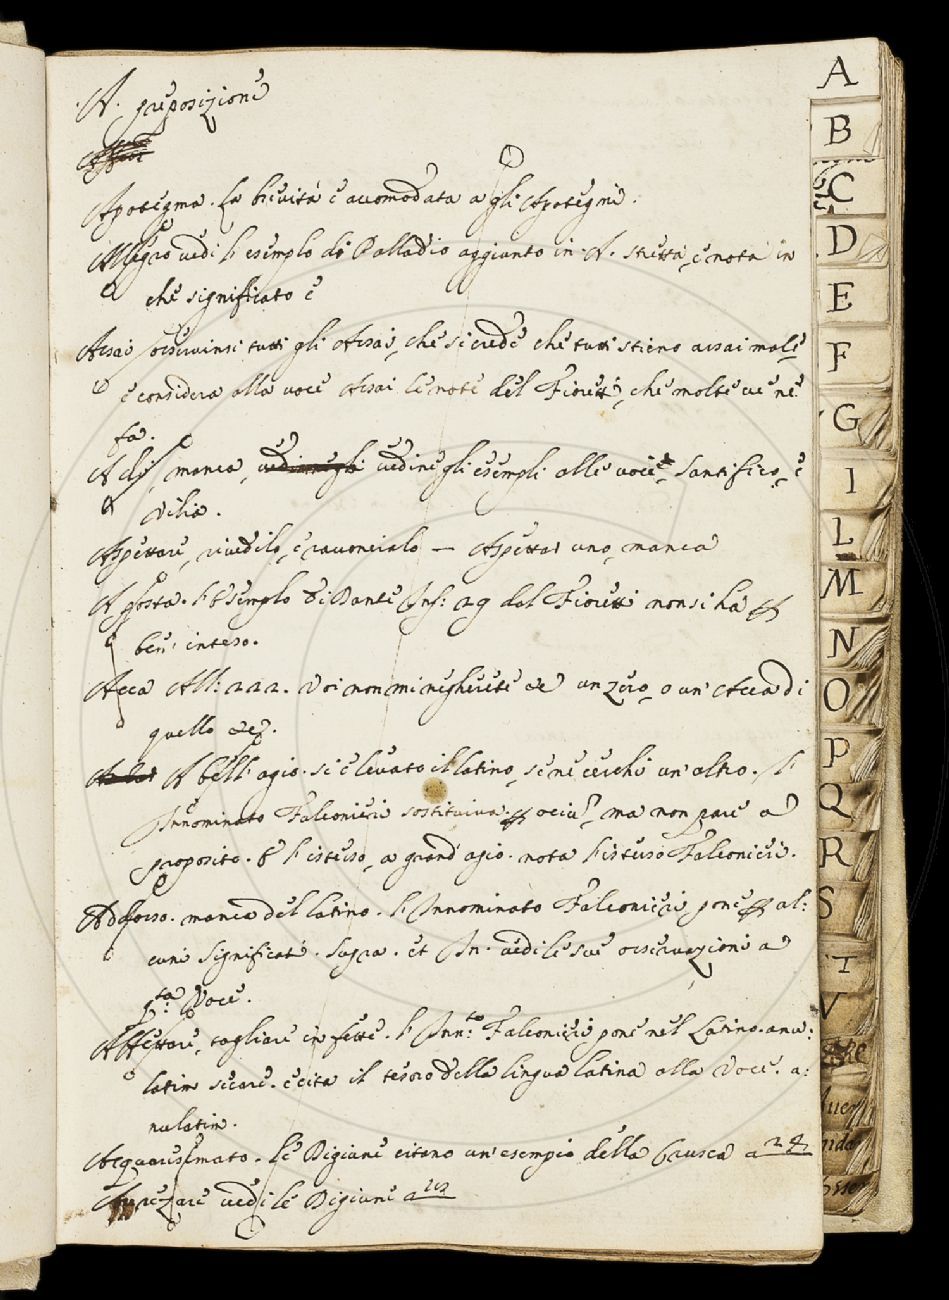 A. preposizione
Apotegma. La brevità è accomodata a gli Apotegmi.
Allegro vedi l'esemplo di Palladio aggiunto in A. stretta, e nota in
che significato è
Assai osservinsi tutti gli Assai, che si crede che tutti stieno assai male,
e considera alla voce Assai le note del Fioretti, che molte ve ne
fa.
manca, vedine gli esempli alle voci Santifico, e
Vilia.
Aspettare, rivedilo, e racconcialo — Aspettar uno, manca
A posta. l'Esemplo di Dante Inf: 29 del Fioretti non si ha p
ben' inteso.
Acca All: 222. Voi non mi negherete un zero, o un' Acca di
quello
A bell' agio. si è levato il latino, se ne cerchi un' altro. l'
Innominato Falconieri sostituiva ma non pare a
proposito. E l'istesso, a grand' agio. nota l'istesso Falconieri.
Addosso. manca del latino. l'Innominato Falconieri pone p al:
cuni significati. supra. et In. vedi le sue osservazioni a
q.ta Voce.
Affettare, tagliare in fette. l'Inn.to Falconieri pone nel Latino. anu:
latim secare. e cita il tesoro della lingua latina alla Voce. a:
nulatim.
le Digiune citano un' esempio della Crusca a 24
vedi le Digiune a
A
B
C
D
E
F
G
I
L
M
N
O
P
Q
R
S
T
V